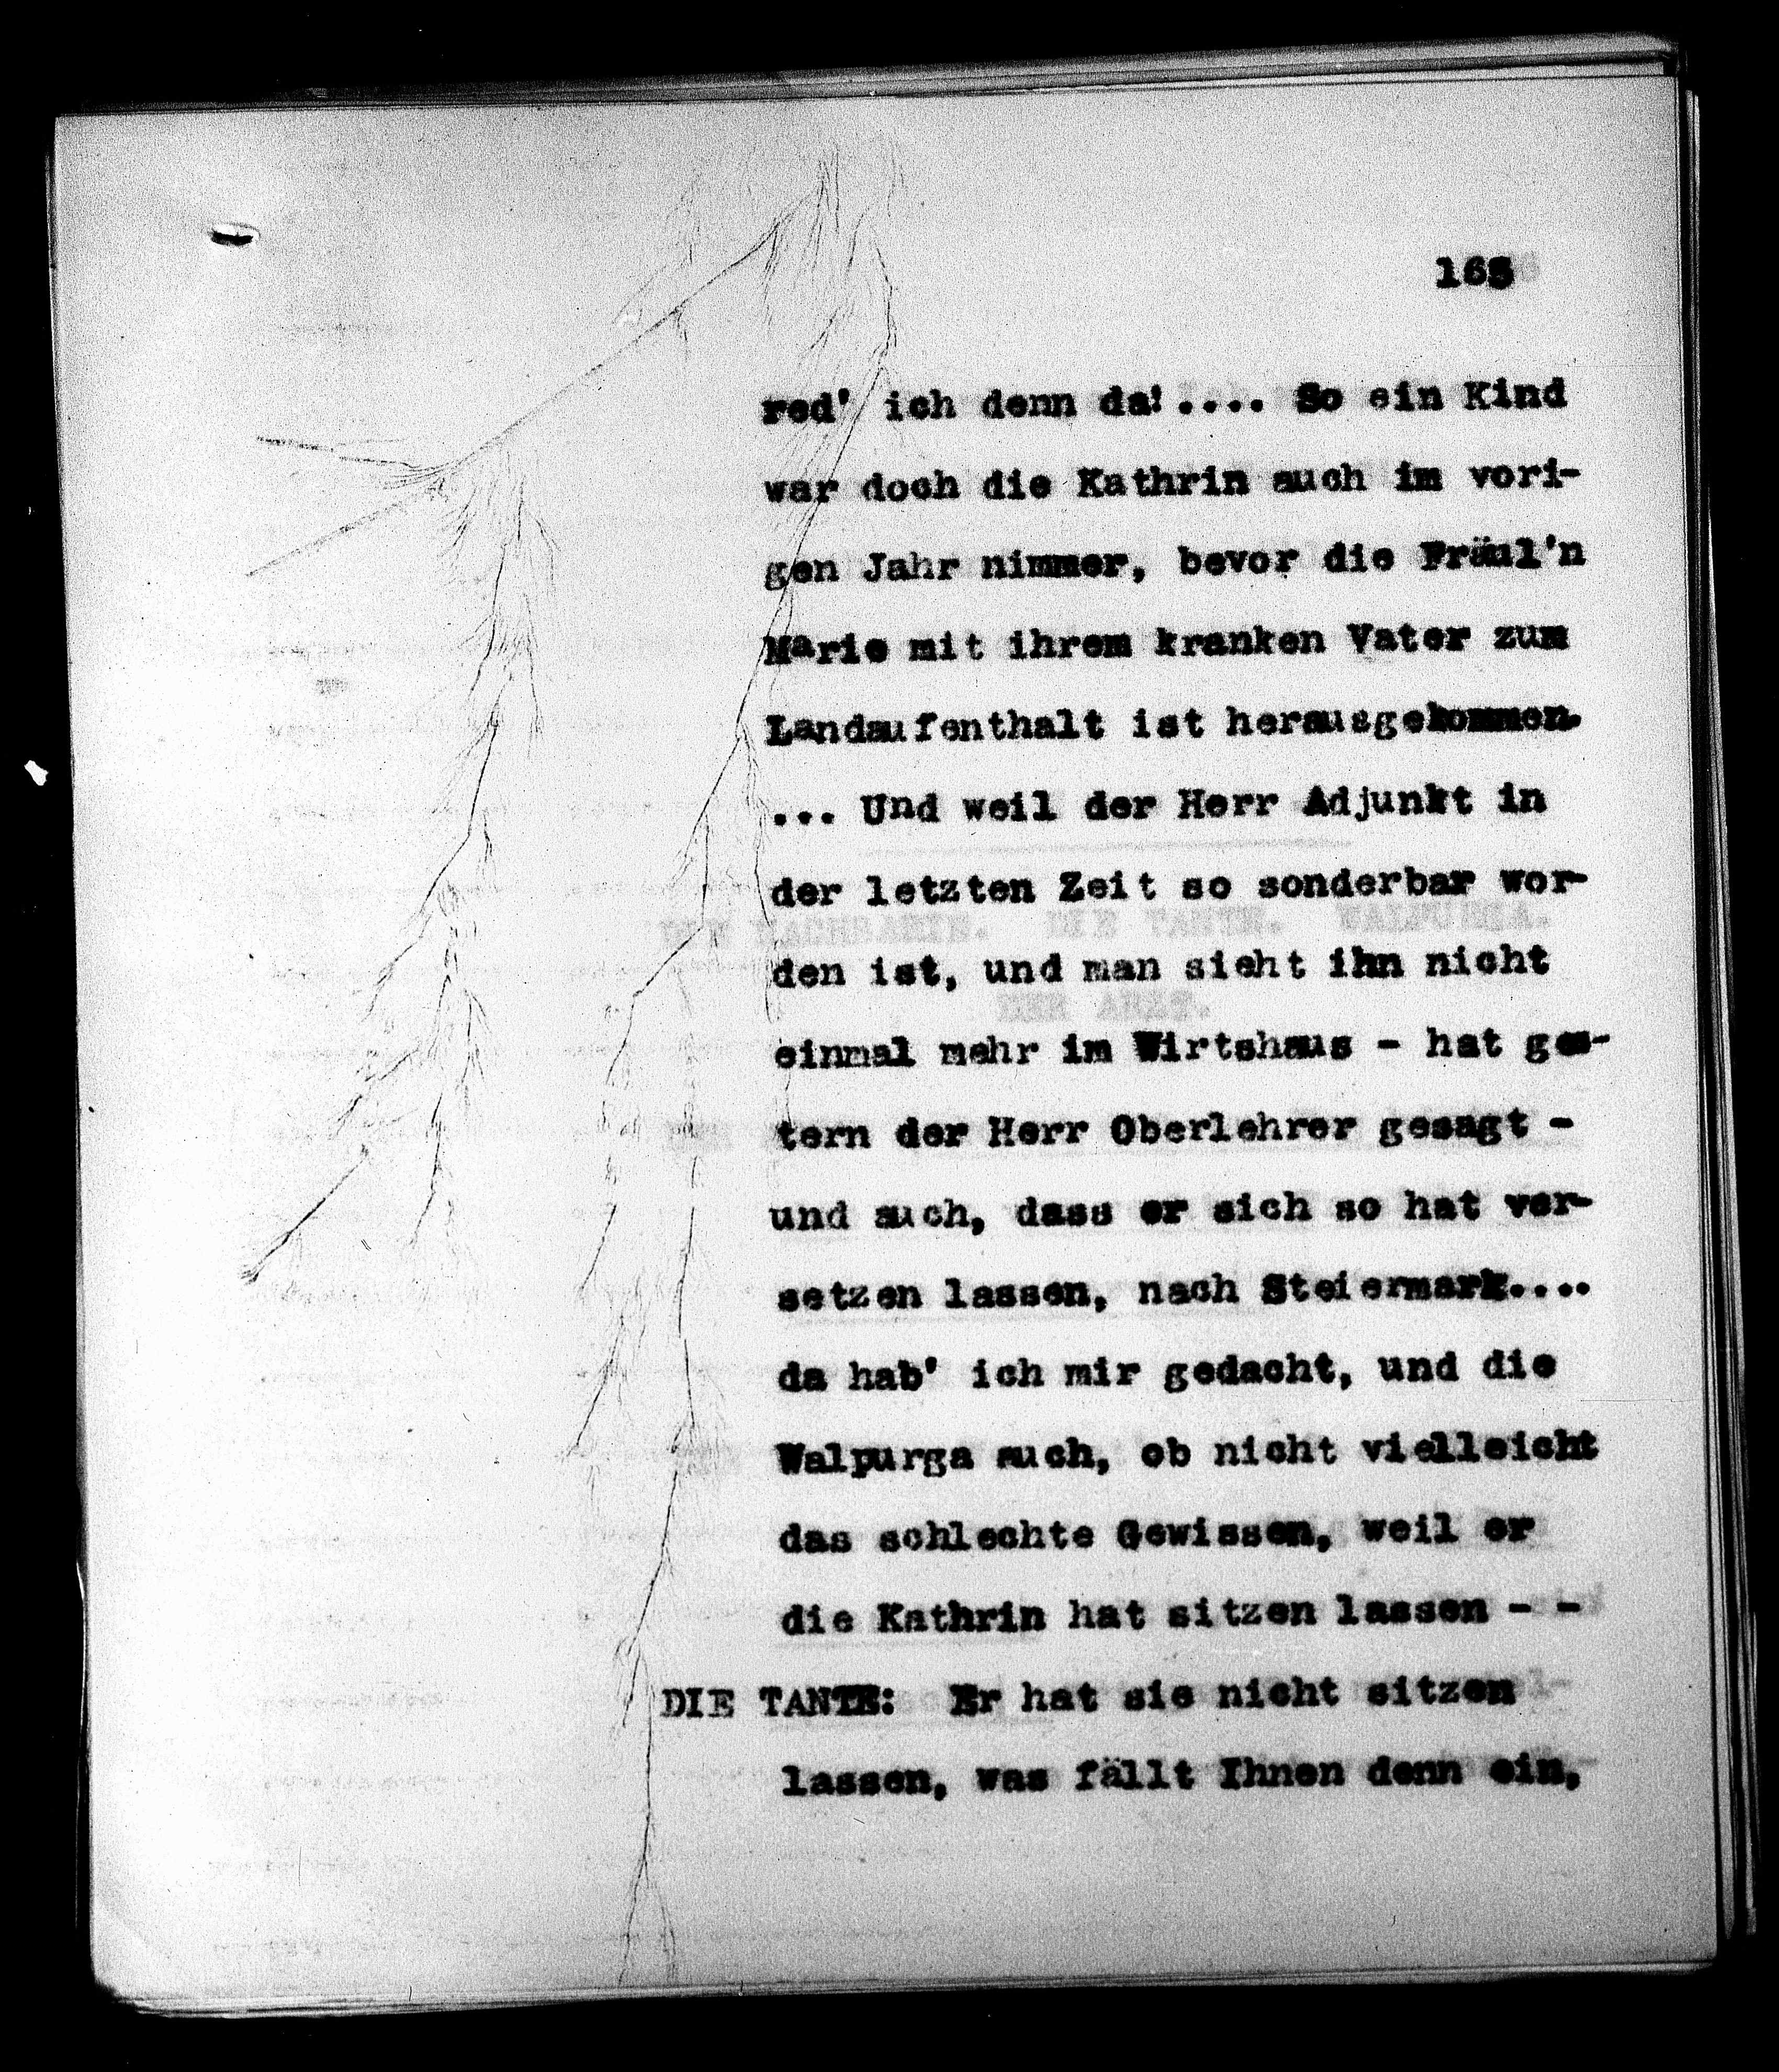 165
red' ich denn da!.... So ein Kind
war doch die Kathrin auch im vori-
gen Jahr nimmer, bevor die Fräul'n
Marie mit ihrem kranken Vater zum
Landaufenthalt ist herausgekommen.
... Und weil der Herr Adjunkt in
der letzten Zeit so sonderbar wor-
den ist, und man sieht ihn nicht
einmal mehr im Wirtshaus - hat ges-
tern der Herr Oberlehrer gesagt -
und auch, dass er sich so hat ver-
setzen lassen, nach Steiermark....
da hab' ich mir gedacht, und die
Walpurga auch, ob nicht vielleicht
das schlechte Gewissen, weil er
die Kathrin hat sitzen lassen - -
DIE TANTE: Er hat sie nicht sitzen
lassen, was fällt Ihnen denn ein,